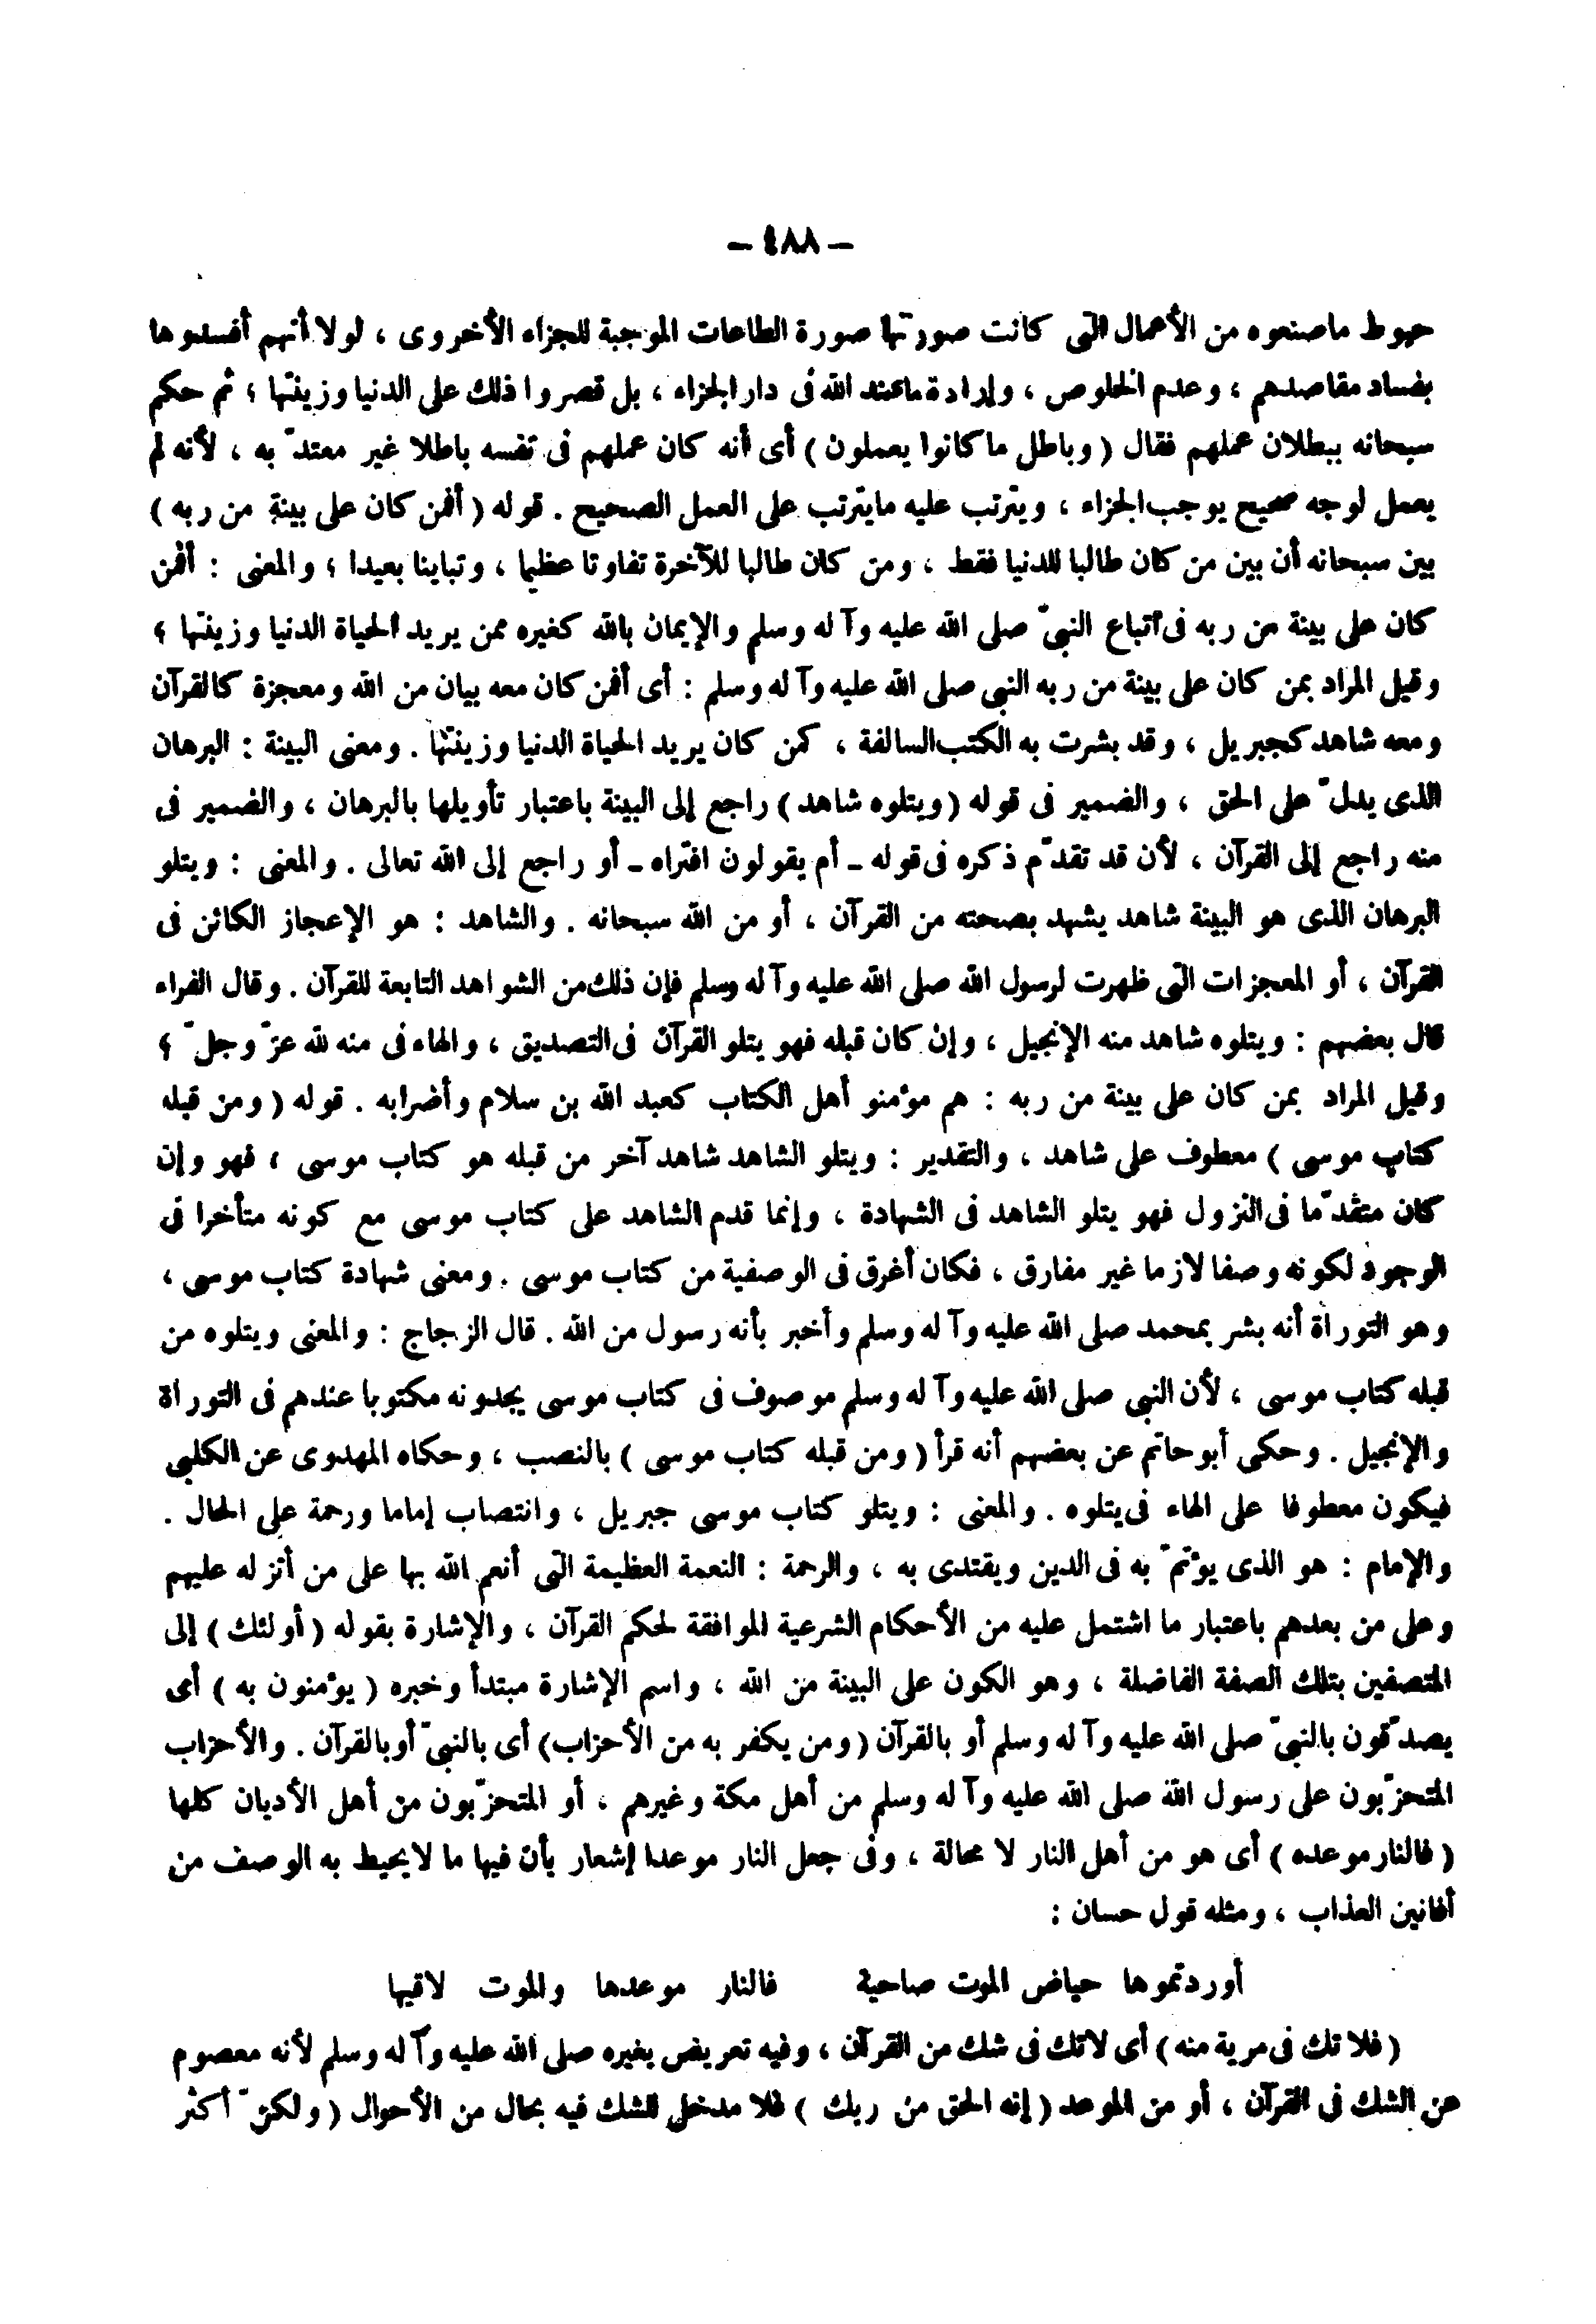 — ٤٨٨ —
حبوط ماصنعوه من الأعمال التى كانت صورتها صورة الطاعات الموجبة للجزاء الأخروى ، لولا أنهم أفسدوها
بفساد مقاصدهم ، وعدم الخلوص ، وإرادة ماعند الله فى دار الجزاء ، بل قصروا ذلك على الدنيا وزينتها ؛ ثم حكم
سبحانه ببطلان عملهم فقال ( وباطل ما كانوا يعملون ) أى أنه كان عملهم فى نفسه باطلا غير معتدّ به ، لأنه لم
يعمل لوجه صحيح يوجب الجزاء ، ويترتب عليه مايترتب على العمل الصحيح . قوله ( أفمن كان على بينة من ربه )
بين سبحانه أن بين من كان طالبا للدنيا فقط ، ومن كان طالبا للآخرة تفاوتا عظيما ، وتباينا بعيدا ؛ والمعنى : أفمن
كان على بينة من ربه فى اتباع النبىّ صلى الله عليه وآله وسلم والإيمان بالله كغيره ممن يريد الحياة الدنيا وزينتها ؛
وقيل المراد بمن كان على بينة من ربه النبى صلى الله عليه وآله وسلم : أى أفمن كان معه بيان من الله ومعجزة كالقرآن
ومعه شاهد كجبريل ، وقد بشرت به الكتب السالفة ، كمن كان يريد الحياة الدنيا وزينتها . ومعنى البينة : البرهان
الذى يدلّ على الحق ، والضمير فى قوله ( ويتلوه شاهد ) راجع إلى البينة باعتبار تأويلها بالبرهان ، والضمير فى
منه راجع إلى القرآن ، لأن قد تقدّم ذكره فى قوله ـ أم يقولون افتراه ـ أو راجع إلى الله تعالى . والمعنى : ويتلو
البرهان الذى هو البينة شاهد يشهد بصحته من القرآن ، أو من الله سبحانه . والشاهد : هو الإعجاز الكائن فى
القرآن ، أو المعجزات التى ظهرت لرسول الله صلى الله عليه وآله وسلم فإن ذلك من الشواهد التابعة للقرآن . وقال الفراء
قال بعضهم : ويتلوه شاهد منه الإنجيل ، وإن كان قبله فهو يتلو القرآن فى التصديق ، والهاء فى منه لله عزّ وجلّ ؛
وقيل المراد بمن كان على بينة من ربه : هم مؤمنو أهل الكتاب كعبد الله بن سلام وأضرابه . قوله ( ومن قبله
كتاب موسى ) معطوف على شاهد ، والتقدير : ويتلو الشاهد شاهد آخر من قبله هو كتاب موسى ، فهو وإن
كان متقدّما فى النزول فهو يتلو الشاهد فى الشهادة ، وإنما قدم الشاهد على كتاب موسى مع كونه متأخرا فى
الوجود لكونه وصفا لازما غير مفارق ، فكان أغرق فى الوصفية من كتاب موسى . ومعنى شهادة كتاب موسى ،
وهو التوراة أنه بشر بمحمد صلى الله عليه وآله وسلم وأخبر بأنه رسول من الله . قال الزجاج : والمعنى ويتلوه من
قبله كتاب موسى ، لأن النبى صلى الله عليه وآله وسلم موصوف فى كتاب موسى يجدونه مكتوبا عندهم فى التوراة
والإنجيل . وحكى أبو حاتم عن بعضهم أنه قرأ ( ومن قبله كتاب موسى ) بالنصب ، وحكاه المهدوى عن الكلبى
فيكون معطوفا على الهاء فى يتلوه . والمعنى : ويتلو كتاب موسى جبريل ، وانتصاب إماما ورحمة على الحال .
والإمام : هو الذى يؤتمّ به فى الدين ويقتدى به ، والرحمة : النعمة العظيمة التى أنعم الله بها على من أنزله عليهم
وعلى من بعدهم باعتبار ما اشتمل عليه من الأحكام الشرعية الموافقة لحكم القرآن ، والإشارة بقوله ( أولئك ) إلى
المتصفين بتلك الصفة الفاضلة ، وهو الكون على البينة من الله ، واسم الإشارة مبتدأ وخبره ( يؤمنون به ) أى
يصدّقون بالنبىّ صلى الله عليه وآله وسلم أو بالقرآن ( ومن يكفر به من الأحزاب) أى بالنبىّ أو بالقرآن . والأحزاب
المتحزّبون على رسول الله صلى الله عليه وآله وسلم من أهل مكة وغيرهم ، أو المتحزّبون من أهل الأديان كلها
( فالنار موعده ) أى هو من أهل النار لا محالة ، وفى جعل النار موعدا إشعار بأن فيها ما لا يحيط به الوصف من
أفانين العذاب ، ومثله قول حسان :
أوردتموها حياض الموت صاحية فالنار موعدها والموت لاقيها
( فلا تك فى مرية منه ) أى لاتك فى شك من القرآن ، وفيه تعريض بغيره صلى الله عليه وآله وسلم لأنه معصوم
عن الشك فى القرآن ، أو من الموعد ( إنه الحق من ربك ) فلا مدخل للشك فيه بحال من الأحوال ( ولكنّ أكثر